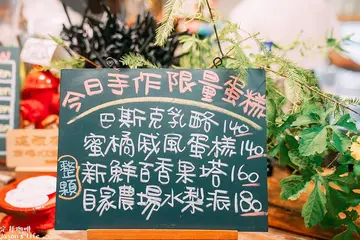 今日手作限量蛋糕
巴斯克乳酪 140
蜜橘戚風蛋糕 140
整顆
新鮮百香果塔 160
自家農場水梨派 180